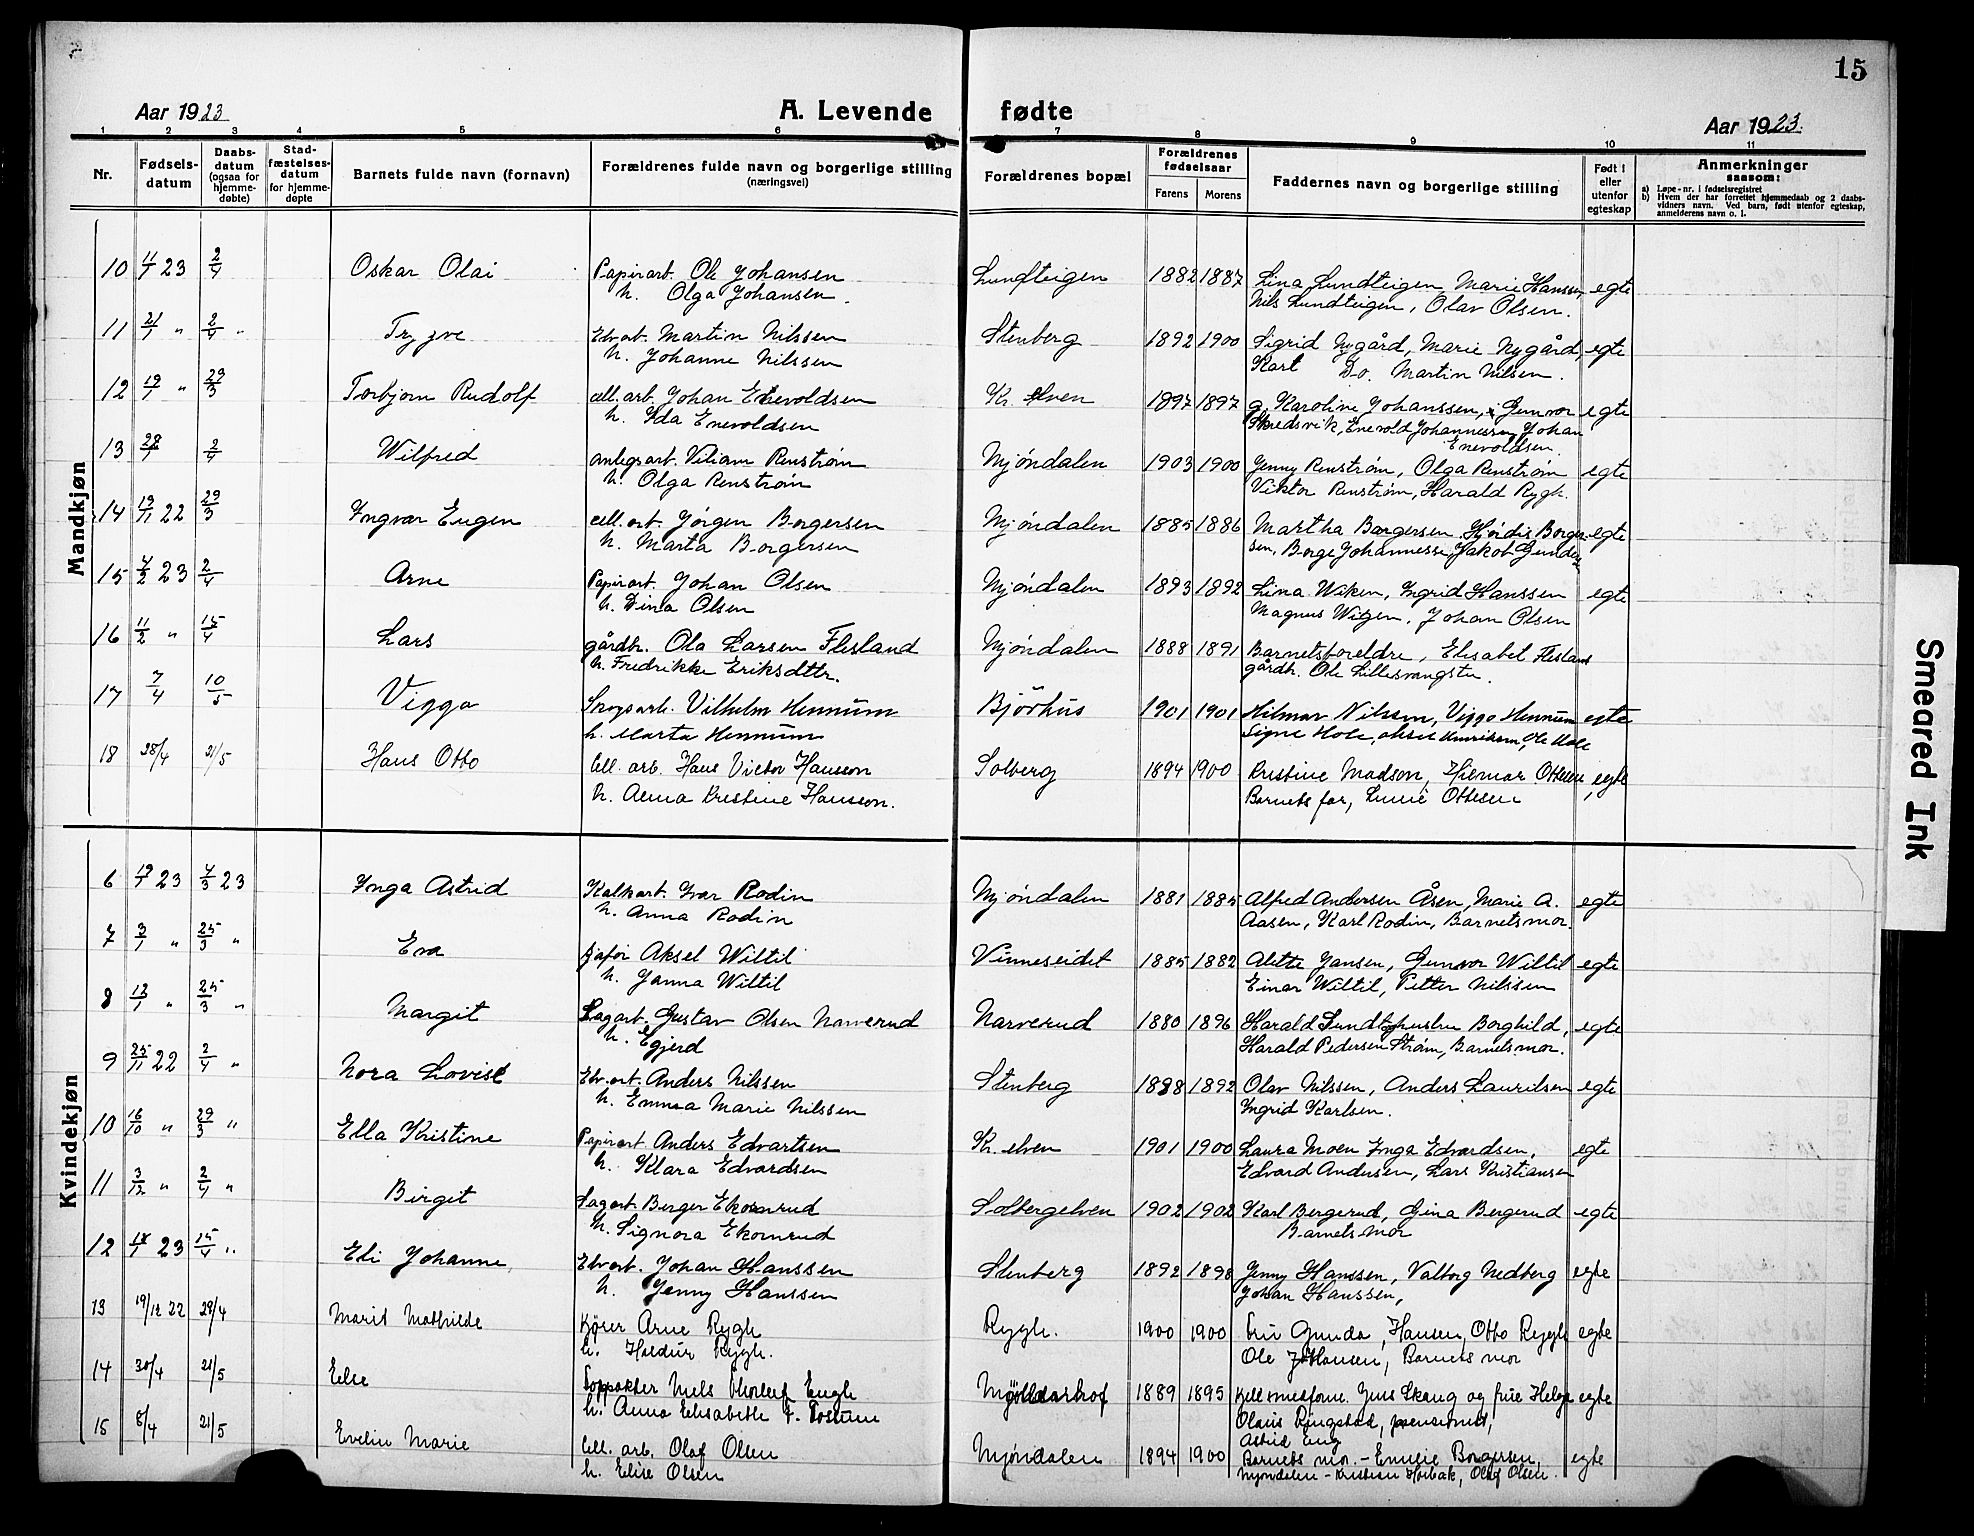 15
Aar 1923
A. Levende fødte
Aar 1923.
1 2 3 4 5 6 7 8 9 10 11
Nr.
Fødsels-
datum
Daabs-
datum
(ogsaa for
hjemme-
døbte)
Stad-
fæstelses-
datum
for hjemme-
døpte
Barnets fulde navn (fornavn)
Forældrenes fulde navn og borgerlige stilling
(næringsvei)
Forældrenes bopæl
Forældrenes
fødselsaar
Farens Morens
Faddernes navn og borgerlige stilling
Født i
eller
utenfor
egteskap
Anmerkninger
saasom:
a) Løpe-nr. i fødselsregistret
b) Hvem der har forrettet hjemmedaab og 2 daabs-
vidners navn. Ved barn, født utenfor egteskap,
anmelderens navn o. l.
Mandkjøn
10 11/1 23 2/4 Oskar Olai Papirarb. Ole Johansen Lundteigen 1882 1887 Lina Lundteigen Marie Hanssen egte
h. Olga Johansen. Nils Lundteigen, Olav Olsen.
11 21/1 " 2/4 " Trygve Elvarb. Martin Nilssen Stenberg 1892 1900 Sigrid Nygård, Marie Nygård, egte
h. Johanne Nilssen Karl Do. Martin Nilsen.
12 19/1 " 29/3 Torbjørn Rudolf cell. arb. Johan Enevoldsen Kr. elven 1897 1897 g. Karoline Johanssen, Gunvor egte
h. Ida Enevoldsen Skredsvik, Enevold Johannessen Johan
Enevoldsen.
13 28/1 2/4 Wilfred anlegsarb. Viliam Renstrøm Mjøndalen 1903 1900 Jenny Renstrøm, Olga Renstrøm egte
h. Olga Renstrøm Viktor Renstrøm, Harald Rygh.
14 19/11 22 29/3 Yngvar Eugen cell. arb. Jørgen Borgersen Mjøndalen 1885 1886 Martha Borgersen Hjørdis Borger- egte
h. Marta Borgersen sen, Borge Johannessen, Jakob Gunder
15 4/2 23 2/4 Arne Papirarb. Johan Olsen Mjøndalen 1893 1892 Lina Wiken, Ingrid Hanssen egte
h. Dina Olsen Magnus Wigen, Johan Olsen
16 11/2 " 15/4 Lars gårdbr. Ola Larsen Flesland Mjøndalen 1888 1891 Barnetsforeldre, Elisabet Flesland
h. Fredrikke Eriksdttr. gårdbr. Ole Lillesvangstu.
17 7/4 10/5 Viggo Skogsarb. Vilhelm Hennum Bjørhus 1901 1901 Hilmar Nilsen, Viggo Hennum egte
h. Marta Hennum Signe Hole, Aksel Henriksen, Ole Hole
18 28/4 21/5 Hans Otto Cell. arb. Hans Victor Hansson Solberg 1894 1900 Kristine Madson, Hjemar Ottesen, egte
h. Anna Kristine Hansson. Barnets far, Ottesen
Kvindekjøn
6 19/1 23 4/3 23 Inga Astrid Kalkarb. Ivar Rodin Mjøndalen 1881 1885 Alfred Andersen Åsen, Marie A. egte
h. Anna Rodin Aasen, Karl Rodin, Barnets mor.
7 3/1 " 25/3 " Eva Aksel Wiltil Vinneseidet 1885 1882 Alette Jansen, Gunvor Wiltil egte
h. Janna Wiltil Einar Wiltil, Petter Nilssen
8 12/1 " 25/3 " Margit Sagarb. Gustav Olsen Narverud Narverud 1880 1896 Harald Borghild, egte
h. Egjerd Harald Pedersen Strøm, Barnets mor.
9 25/11 22 2/4 " Nora Lovise Elv. arb. Anders Nilssen Stenberg 1888 1892 Olav Nilssen, Anders Lauritsen egte
h. Emma Marie Nilssen Ingrid Karlsen.
10 16/10 " 29/3 " Ella Kristine Papirarb Anders Edvartsen Kr. elven 1901 1900 Laura Moen Inga Edvardsen, egte
h. Klara Edvardsen Edvard Andersen, Lars Kristiansen
11 3/12 " 2/4 " Birgit Sagarb Berger Ekornrud Solbergelven 1902 1902 Karl Bergerud, Gina Bergerud egte
h. Signora Ekornrud Barnets mor
12 18/1 23 15/4 " Eli Johanne Elvarb. Johan Hanssen Stenberg 1892 1898 Jenny Hanssen, Valborg Nedberg egte
h. Jenny Hanssen Johan Hanssen,
13 19/12 22 29/4 Marit Mathilde Kjører Arne Rygh Rygh. 1900 1900 Fru Gunda Hansen, Otto Rygh egte
h. Rygh. Ole Johansen, Barnets mor
14 30/4 21/5 Else Nels Eugh 1889 1895 Jens Skaug og frue Helga egte
h. Anna Elisabeth F. Olaus Ringstad, pensionist,
Astrid Eng
15 8/4 21/5 Evelin Marie Cell. arb. Olaf Olsen Mjøndalen 1894 1900 Barnets mor. - Emilie Borgersen, egte
h. Elise Olsen Mjøndalen - Kristian Hoibak, Olaf Olsen.
Smeared Ink